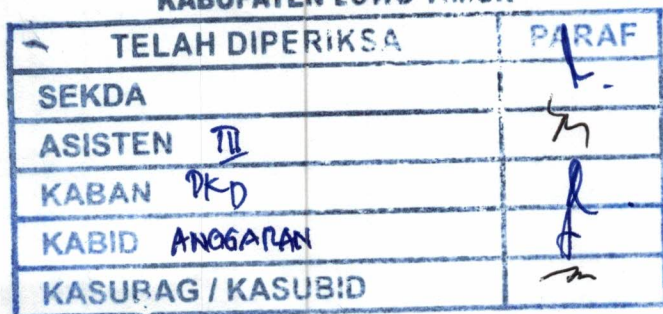 KABUPATEN LUWU TIMUR
TELAH DIPERIKSA PARAF
SEKDA
ASISTEN III
KABAN PKD
KABID ANGGARAN
KASUBAG / KASUBID